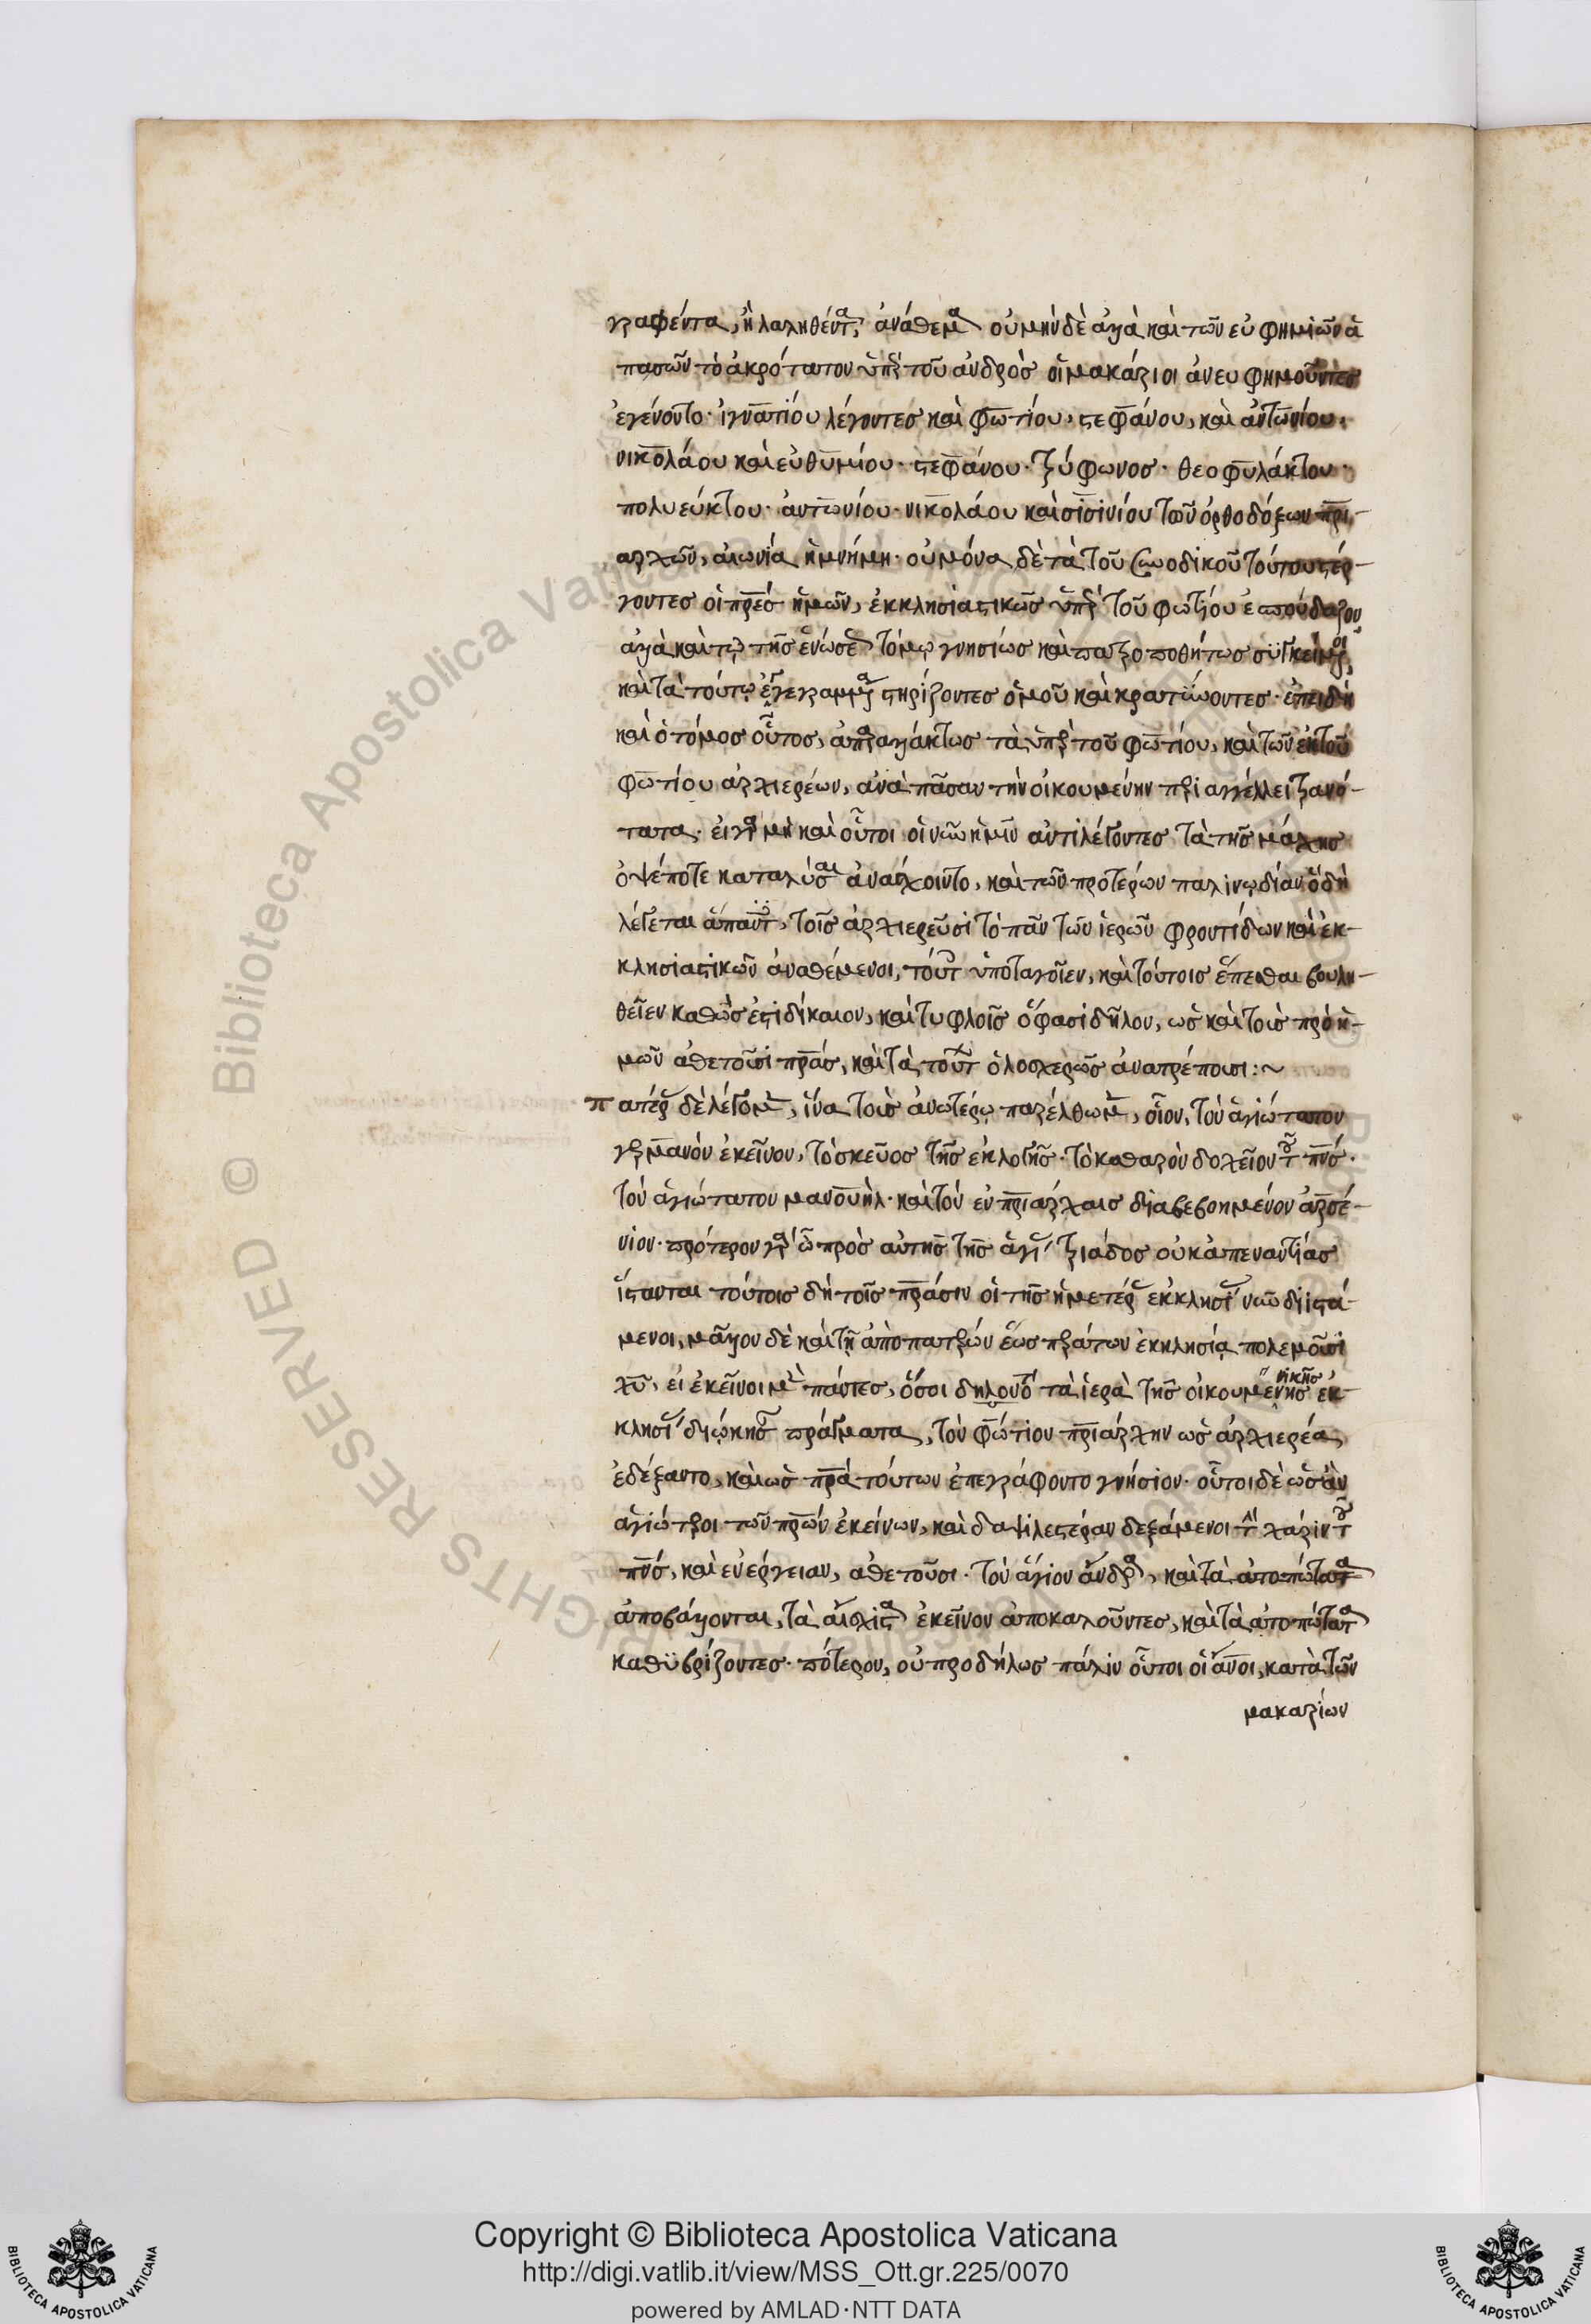 γραφέντα, ἢ λαληθέντα, ἀνάθεμα οὐ μὴν δὲ ἀλλὰ καὶ τῶν εὐφημιῶν ἁ
πασῶν τὸ ἀκρότατον ὑπὲρ τοῦ ἀνδρὸς οἱ μακάριοι ἀνευφημοῦντες
ἐγένοντο· ἰγνατίου λέγοντες καὶ φωτίου, στεφάνου, καὶ ἀντωνίου,
νικολάου καὶ εὐθυμίου· στεφάνου· τρύφωνος· θεοφυλάκτου·
πολυεύκτου· ἀντωνίου· νικολάου καὶ σισινίου τῶν ὀρθοδόξων πρι-
αρχῶν, αἰωνία ἡ μνήμη· οὐ μόνα δὲ τὰ τοῦ συνοδικοῦ τούτου στέρ-
γοντες οἱ πρες ἡμῶν, ἐκκλησιαστικῶς ὑπὲρ τοῦ φωτίου ἐσπούδαζον
ἀλλὰ καὶ τῷ τῆς ἑνώσεως τόμῳ γνησίως καὶ πατροποθήτως συγκείμενοι,
καὶ τὰ τούτῳ ἐγγεγραμμένα στηρίζοντες ὁμοῦ καὶ κρατύνοντες· ἐπειδὴ
καὶ ὁ τόμος οὗτος, ἀπαραλλάκτως τὰ ὑπὲρ τοῦ φωτίου, καὶ τῶν ἐκ τοῦ
φωτίου ἀρχιερέων, ἀνὰ πᾶσαν τὴν οἰκουμένην περιαγγέλλει τρανό-
τατα. εἰ γὰρ μὴ καὶ οὗτοι οἱ νῦν ἡμῖν ἀντιλέγοντες τὰ τῆς μάχης
ὀψέποτε καταλύσαι ἀνάσχοιντο, καὶ τῶν προτέρων παλινῳδίαν ὃ δὴ
λέγεται τοῖς ἀρχιερεῦσι τὸ πᾶν τῶν ἱερῶν φροντίδων καὶ ἐκ-
κλησιαστικῶν ἀναθέμενοι, τούτοις ὑποταγοῖεν, καὶ τούτοις ἕπεσθαι βουλη-
θεῖεν καθώς ἐστι δίκαιον, καὶ τυφλοῖς ὅ φασι δῆλον, ὡς καὶ τοὺς πρὸ ἡ-
μῶν ἀθετοῦσι πρας, καὶ τὰ τούτων ὁλοσχερῶς ἀνατρέπουσι:~
πατέρας δὲ λέγομεν, ἵνα τοὺς ἀνωτέρω παρέλθωμεν, οἷον, τὸν ἁγιώτατον
γερμανὸν ἐκεῖνον, τὸ σκεῦος τῆς ἐκλογῆς· τὸ καθαρὸν δοχεῖον τοῦ πνς·
τὸν ἁγιώτατον μανουήλ· καὶ τὸν ἐν πριάρχαις διαβεβοημένον ἀρσέ-
νιον· πρότερον γὰρ ὢ πρὸς αὐτῆς τῆς ἁγίας τριάδος οὐκ ἀπεναντίας
ἵστανται τούτοις δὴ τοῖς πράσιν οἱ τῆς ἡμετέρας ἐκκλησίας νῦν διιστά-
μενοι, μᾶλλον δὲ καὶ τῇ ἀπὸ πατρῶν ἕως περάτων ἐκκλησίᾳ πολεμοῦσι
χυ. εἰ ἐκεῖνοι μὲν πάντες, ὅσοι δηλονότι τὰ ἱερὰ τῆς οἰκουμενικῆς ἐκ-
κλησίας διῴκησαν πράγματα, τὸν φώτιον πριάρχην ὡς ἀρχιερέα
ἐδέξαντο, καὶ ὡς πρα τούτων ἐπεγράφοντο γνήσιον· οὗτοι δὲ ὡσὰν
ἁγιώτεροι τῶν πρων ἐκείνων, καὶ δαψιλεστέραν δεξάμενοι τὴν χάριν τοῦ
πνς, καὶ ἐνέργειαν, ἀθετοῦσι· τὸν ἅγιον ἄνδρα, καὶ τὰ ἀτοπώτατα
ἀποβάλλονται, τὰ αἴσχιστα ἐκεῖνον ἀποκαλοῦντες, καὶ τὰ ἀτοπώτατα
καθυβρίζοντες· πότερον, οὐ προδήλως πάλιν οὗτοι οἱ ἄνοι, κατὰ τῶν
μακαρίων
Copyright © Biblioteca Apostolica Vaticana
http://digi.vatlib.it/view/MSS_Ott.gr.225/0070
powered by AMLAD·NTT DATA